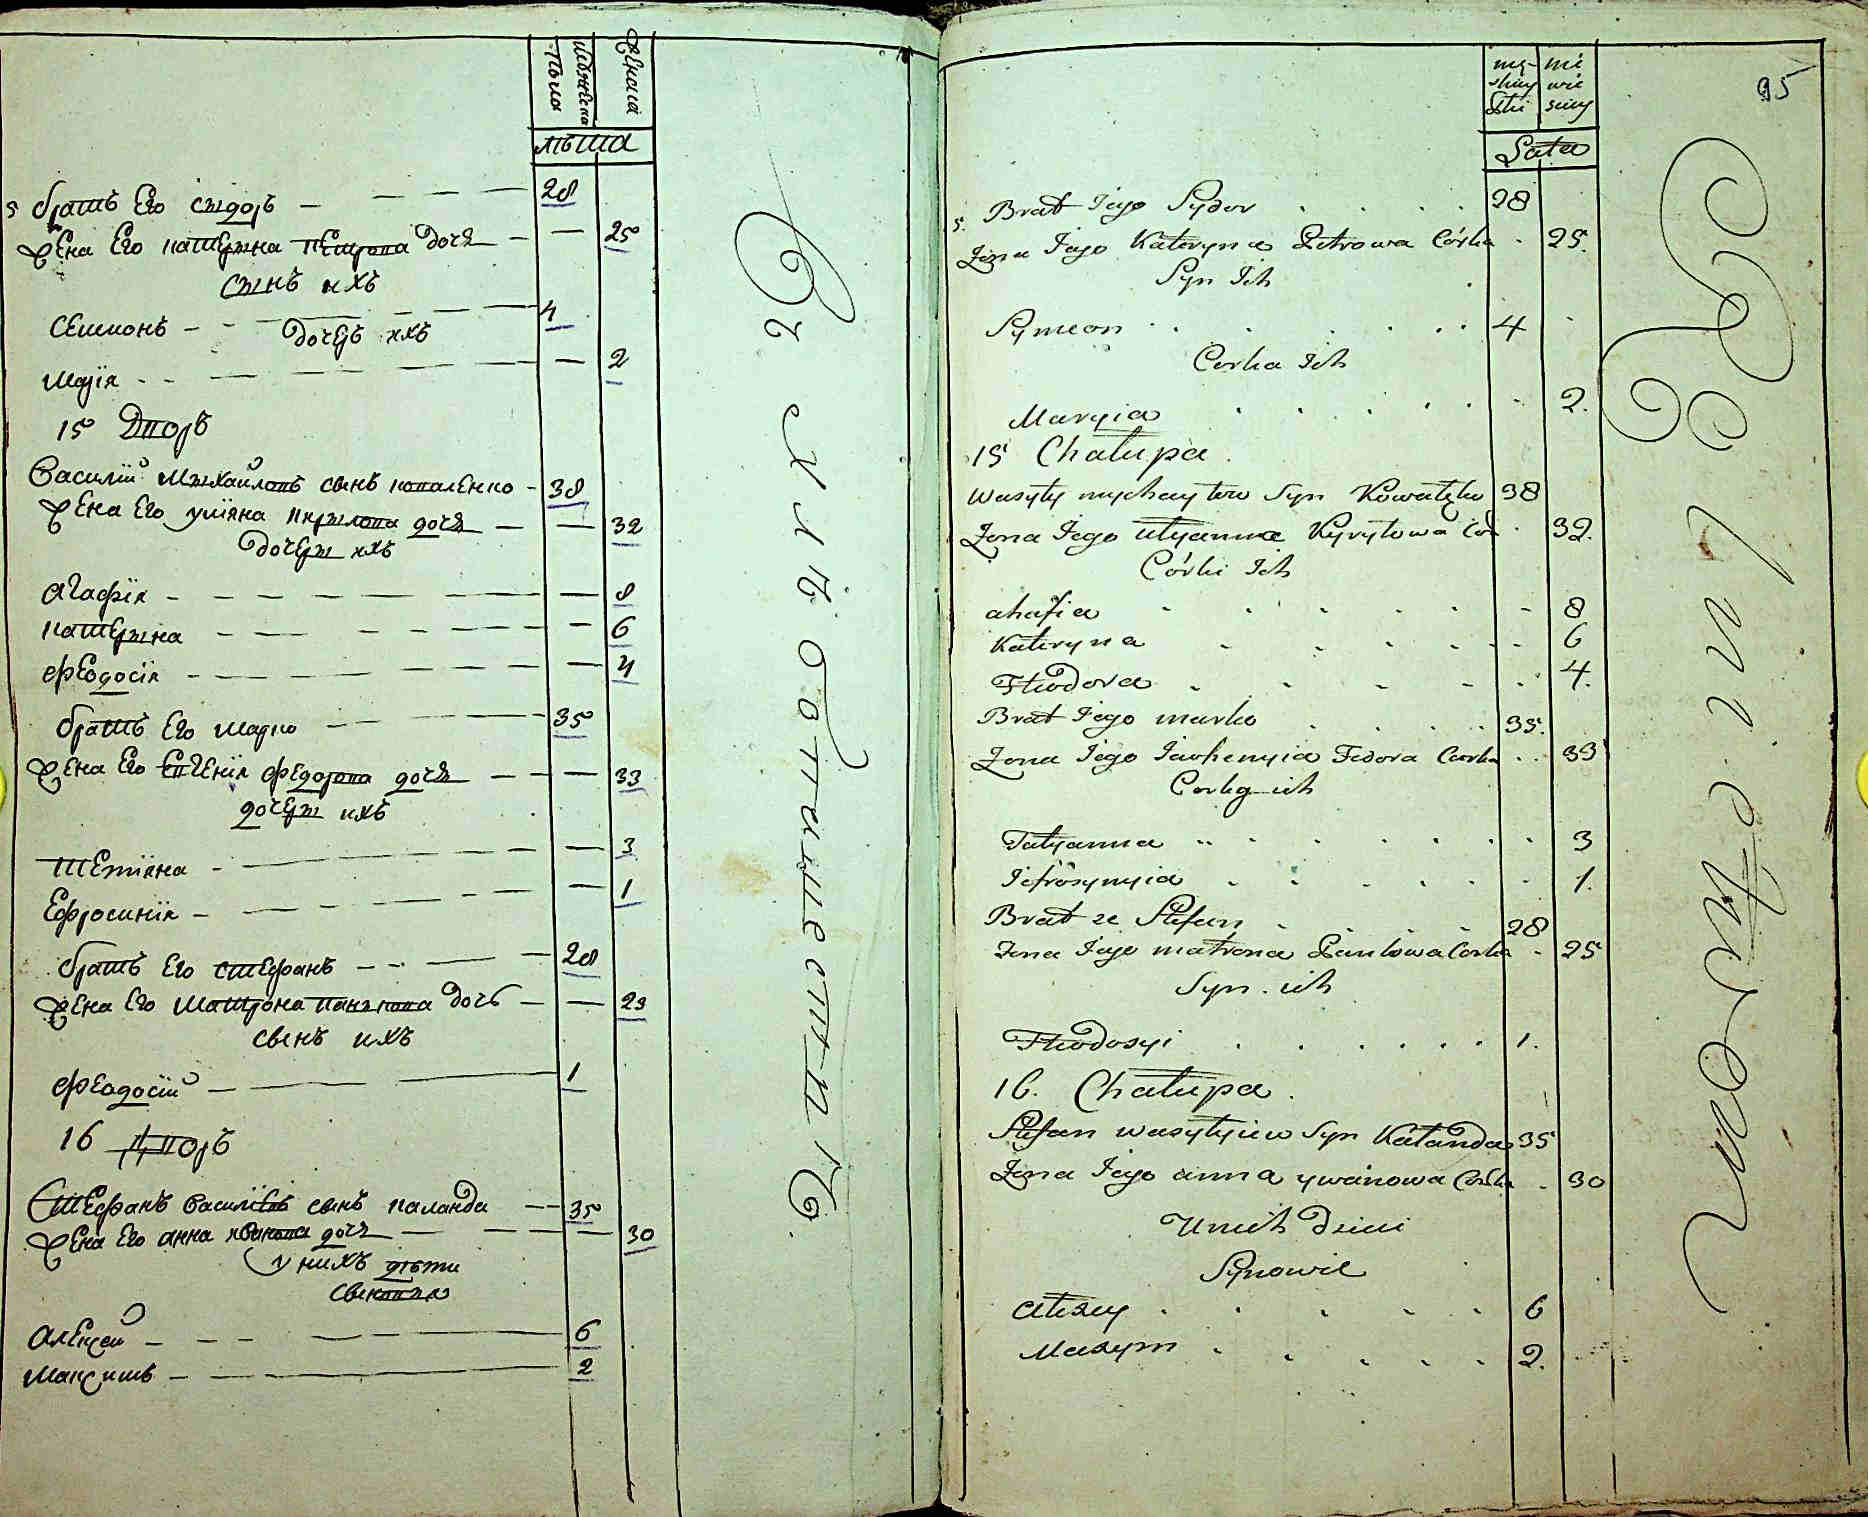 Мужеска
Пола
Женска
лѣта
5 братъ Его сыдоръ 28
Жена Его катерына петрова дочъ 25
сынъ ихъ
Семионъ 4
дочеръ ихъ
Марія 2
15 Дворъ
Василій Мыхайловъ сынъ коваленко 38
Жена Его уліяна кирылова дочъ 32
дочеры ихъ
Агафія 8
катерына 6
феодосія 4
братъ Его марко 35
Жена Его Евгенія федорова дочъ 33
дочеры ихъ
тетіяна 3
Ефросинія 1
братъ Его стефанъ 28
Жена Его матрона павлова дочъ 25
сынъ ихъ
феодосій 1
16 Дворъ
Стефанъ Василіевъ сынъ каланда 35
Жена Его анна иванова дочъ 30
у нихъ дѣти
сыновья
Алексей 6
Максимъ 2
95
Lata
5. Brat Jego Sydor 28
Zona Jego Kateryna Petrowa Córka 25.
Syn Ich
Symeon 4
Corka Ich
Maryia 2.
15 Chałupa
Wasyły mychayłow Syn Kowalęko 38
Zona Jego Ulyanna Kyryłowa Cor 32.
Córki Ich
ahafia 8
Kateryna 6
Fteodora 4.
Brat Jego marko 35.
Zona Jego Jewhenyia Fedora Corka 33
Corky ich
Tatyanna 3
Jefrosynyia 1.
Brat ze Stefan 28
Zona Jego matrona Pawłowa Corka 25
Syn ich
Fteodosyi 1.
16. Chałupa
Stefan wasyłyiew Syn Kałanda 35
Zona Jego anna ywanowa Corka 30
U nich Dzieci
Synowie
Alexey 6
Maxym 2.